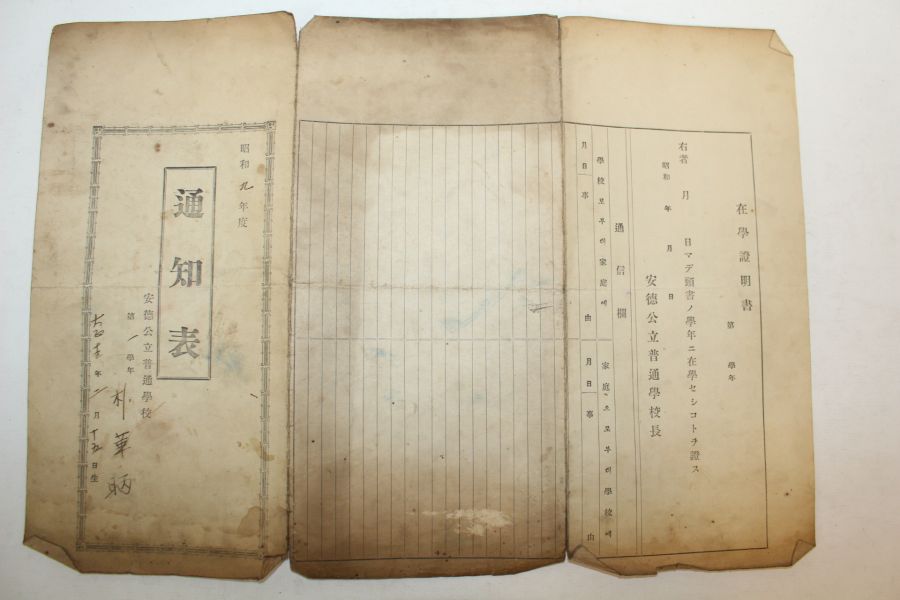 在學證明書
第 學年
右者 月 日マデ頭書ノ學年ニ在學セシコトヲ證ス
昭和 年 月 日
安德公立普通學校長
通信欄
學校로부터家庭에 家庭으로부터學校에
月日 事由 月日 事由
昭和九年度
通知表
安德公立普通學校
第一學年
朴
年 月十五日生